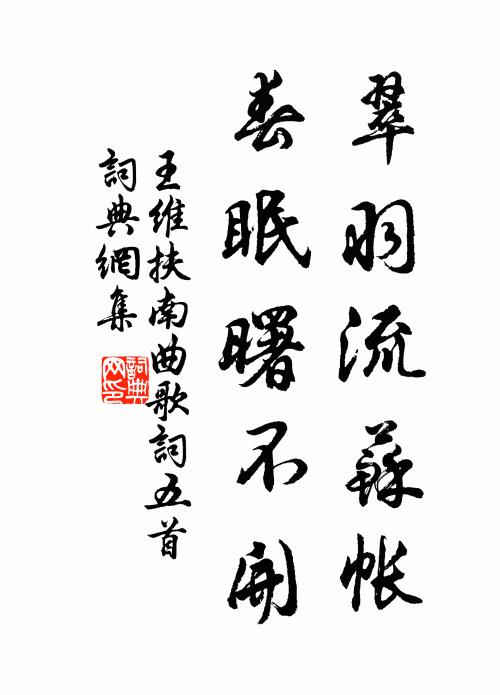 翠羽流蘇帳
春眠曙不開
王維扶南曲歌詞五首
詞典網集
詞典網印